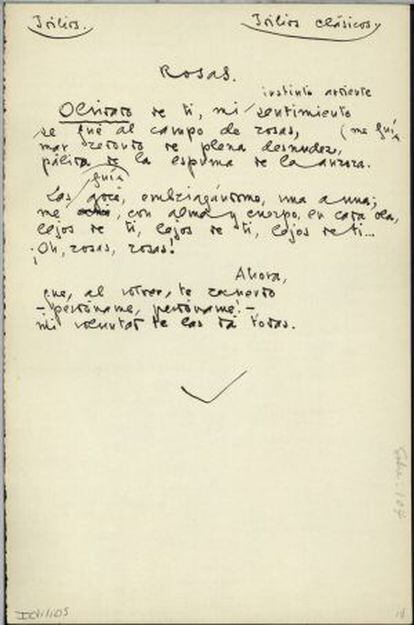 Idilios. Idilios clásicos
Rosas.
instinto ardiente
Olvidado de ti, mi sentimiento
se fué al campo de rosas, (me fuí
mar redondo de plena desnudez,
pálida de la espuma de la aurora.
fuía
Las gocé, embriagándome, una a una;
me , con alma y cuerpo, en cada ola,
lejos de ti, lejos de ti, lejos de ti...
¡Oh, rosas, rosas!
Ahora,
que, al volver, te recuerdo
—¡perdóname, perdóname!—
mi voluntad te las da todas.
IDILIOS